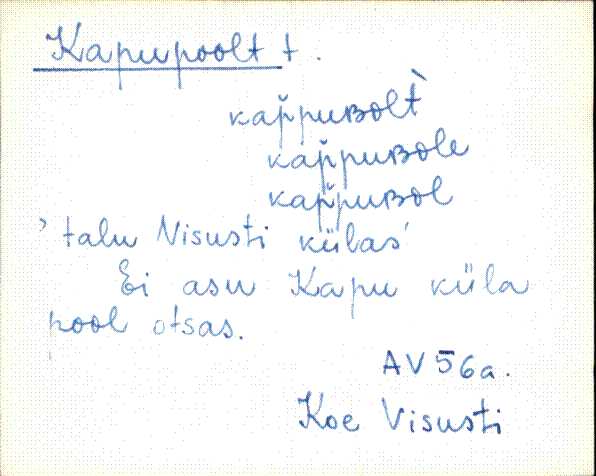 Kapupoolt t.
kap̆puʙolt̀
kap̆puʙole
kap̆puʙol
'talu Visusti külas'
Ei asu Kapu küla
pool otsas.
AV 56a.
Koe Visusti